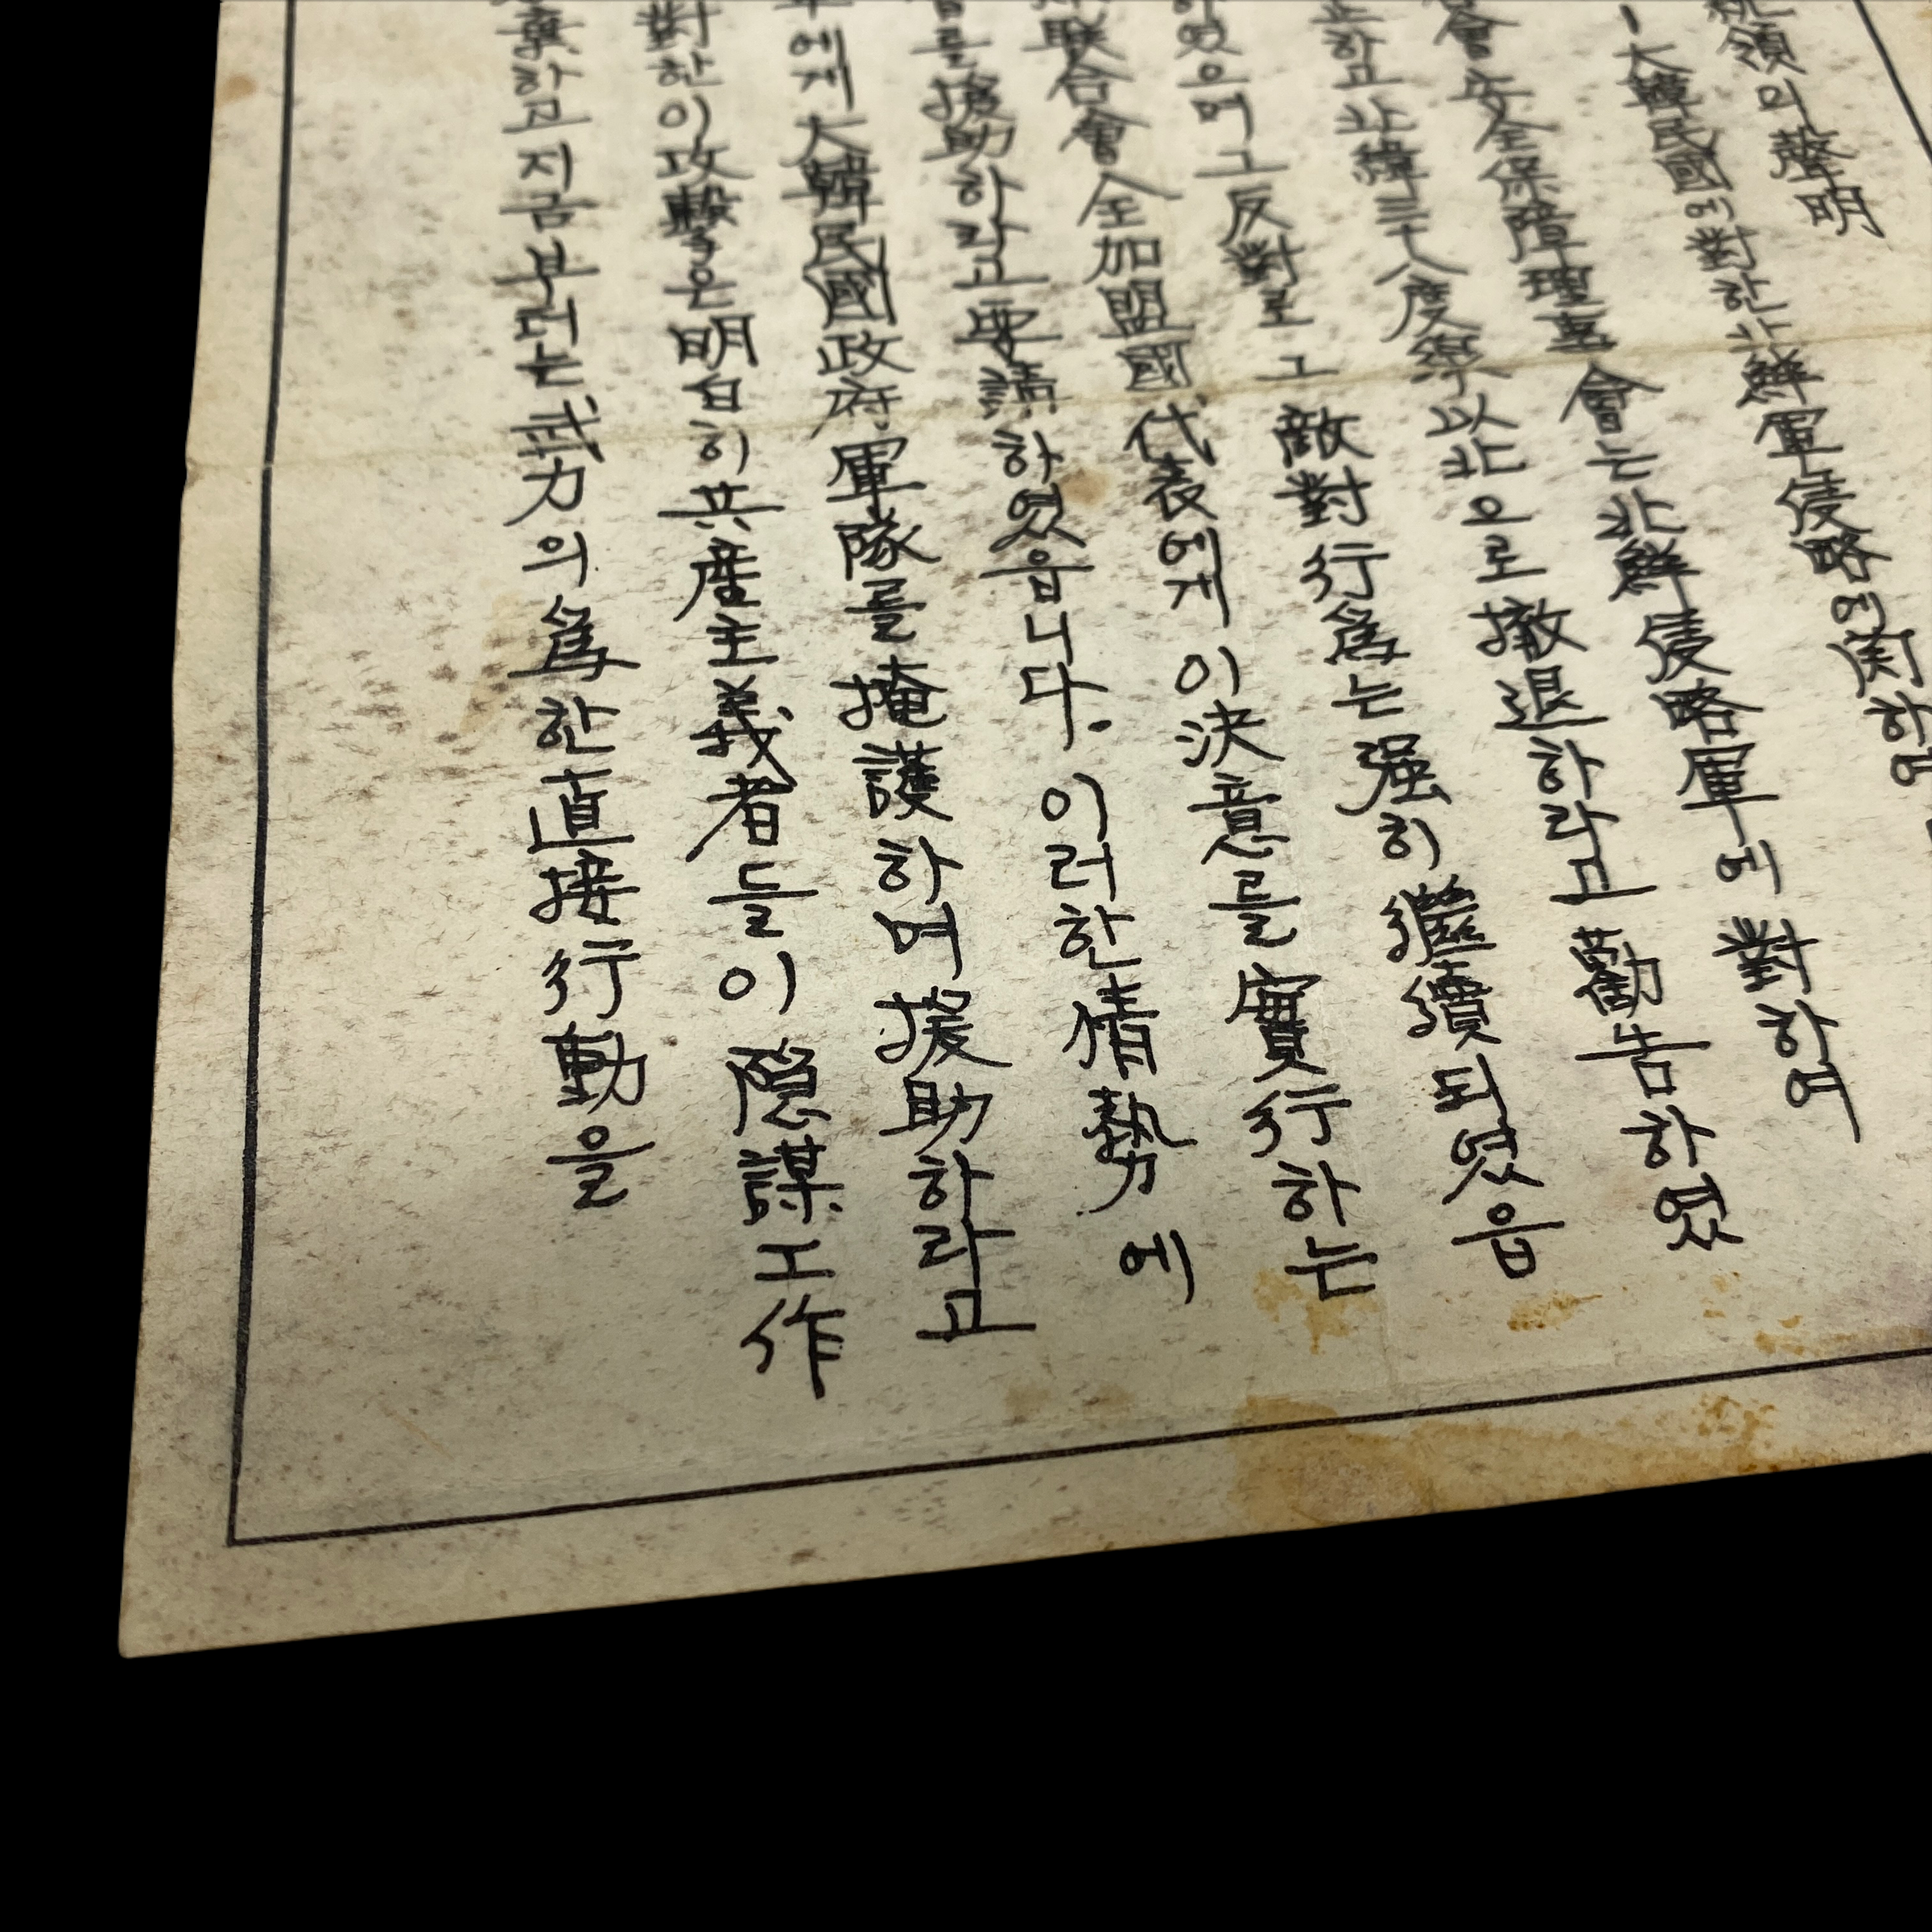 領의 聲明
大韓民國에 對한 北鮮軍侵略에 関하여
會安全保障理事會는 北鮮侵略軍에 對하여
止하고 北緯三十八度線以北으로 撤退하라고 勸告하였
였으며 그 反對로 그 敵對行爲는 强히 繼續되였읍
联合會 全加盟國代表에게 이 決意를 實行하는
를 援助하라고 要請하였읍니다. 이러한 情勢에
에게 大韓民國政府軍隊를 掩護하며 援助하라고
對한 이 攻擊은 明白히 共産主義者들이 隠謀工作
棄하고 지금부터는 武力의 爲한 直接行動을